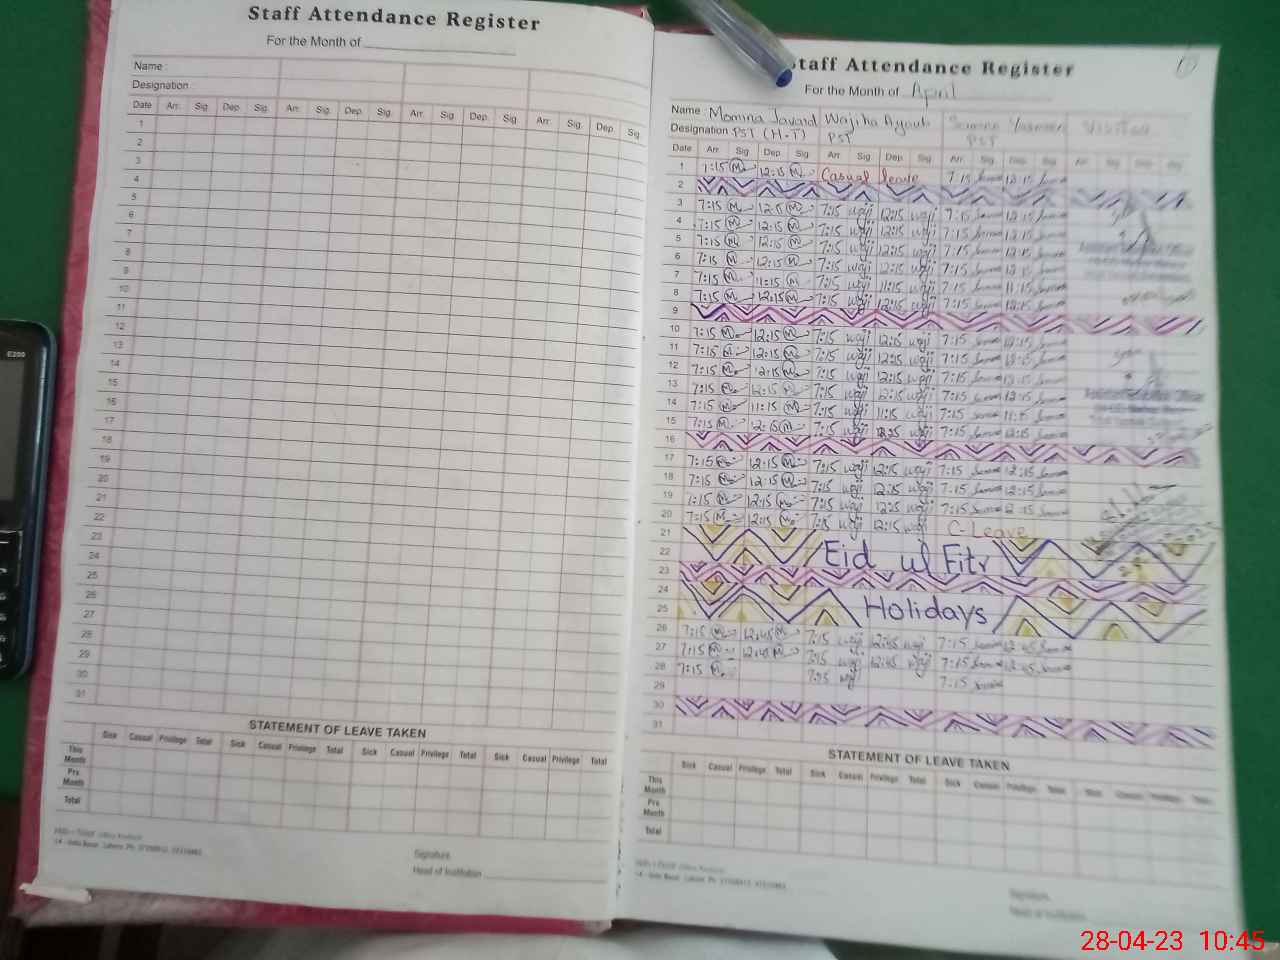 Staff Attendance Register
For the Month of
Name :
Designation
Date Arr. Sig. Dep. Sig. Arr. Sig. Dep. Sig. Arr. Sig. Dep. Sig.
1
2
3
4
5
6
7
8
9
10
11
12
13
14
15
16
17
18
19
20
21
22
23
24
25
26
27
28
29
30
31
STATEMENT OF LEAVE TAKEN
Sick Casual Privilege Total Sick Casual Privilege Total Sick Casual Privilege Total Sick Casual Privilege Total
This Month
Prs Month
Total
Signature
Head of Institution
Staff Attendance Register
For the Month of April
Name : Momina Javaid Wajiha Ayaub Samina Yasmeen VISITOR
Designation PST (H.T) PST PST
Date Arr. Sig. Dep. Sig. Arr. Sig. Dep. Sig. Arr. Sig. Dep. Sig. Arr. Sig. Dep. Sig.
1 7:15 M 12:15 M Casual leave 7:15 12:15
2
3 7:15 M 12:15 M 7:15 waji 12:15 waji 7:15 12:15
4 7:15 M 12:15 M 7:15 waji 12:15 waji 7:15 12:15
5 7:15 M 12:15 M 7:15 waji 12:15 waji 7:15 12:15
6 7:15 M 12:15 M 7:15 waji 12:15 waji 7:15 12:15
7 7:15 M 11:15 M 7:15 waji 11:15 waji 7:15 11:15
8 7:15 M 12:15 M 7:15 waji 12:15 waji 7:15 12:15
9
10 7:15 M 12:15 M 7:15 waji 12:15 waji 7:15 12:15
11 7:15 M 12:15 M 7:15 waji 12:15 waji 7:15 12:15
12 7:15 M 12:15 M 7:15 waji 12:15 waji 7:15 12:15
13 7:15 M 12:15 M 7:15 waji 12:15 waji 7:15 12:15
14 7:15 M 11:15 M 7:15 waji 11:15 waji 7:15 11:15
15 7:15 M 12:15 M 7:15 waji waji 7:15 12:15
16
17 7:15 M 12:15 M 7:15 waji 12:15 waji 7:15 12:15
18 7:15 M 12:15 M 7:15 waji 12:15 waji 7:15 12:15
19 7:15 M 12:15 M 7:15 waji 12:15 waji 7:15 12:15
20 7:15 M 12:15 M 7:15 waji 12:15 waji C-Leave
21
22 Eid ul Fitr
23
24
25 Holidays
26 7:15 M 12:45 M 7:15 waji 12:45 waji 7:15 12:45
27 7:15 M 12:45 M 7:15 waji 12:45 waji 7:15 12:45
28 7:15 M 7:15 waji 7:15
29
30
31
STATEMENT OF LEAVE TAKEN
Sick Casual Privilege Total Sick Casual Privilege Total Sick Casual Privilege
This Month
Prs Month
Total
Signature
Head of Institution
E200
28-04-23 10:45